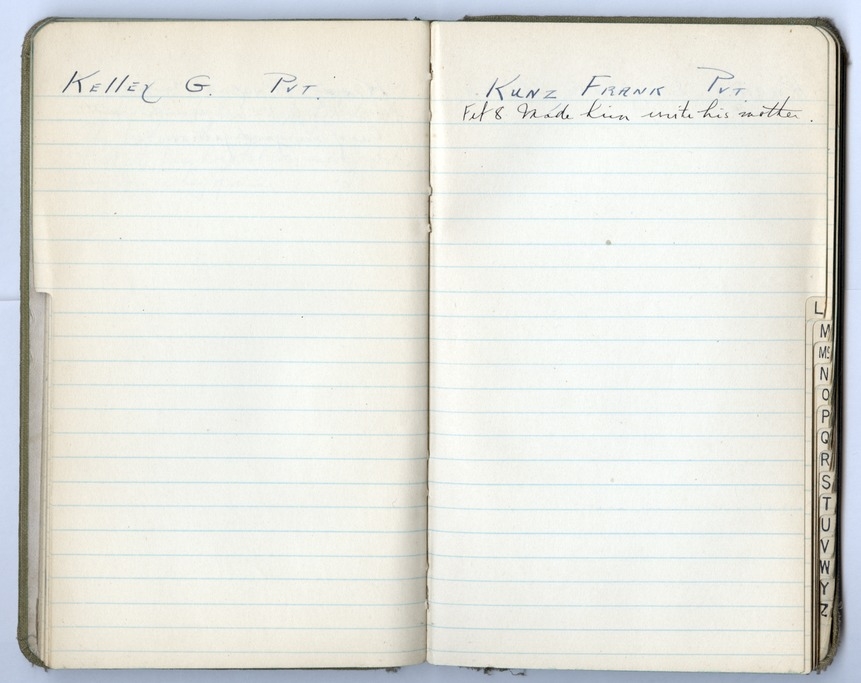 Kelley G. Pvt.
Kunz Frank Pvt
Feb 8 Made him write his mother.
L
M
Mc
N
O
P
Q
R
S
T
U
V
W
Y
Z